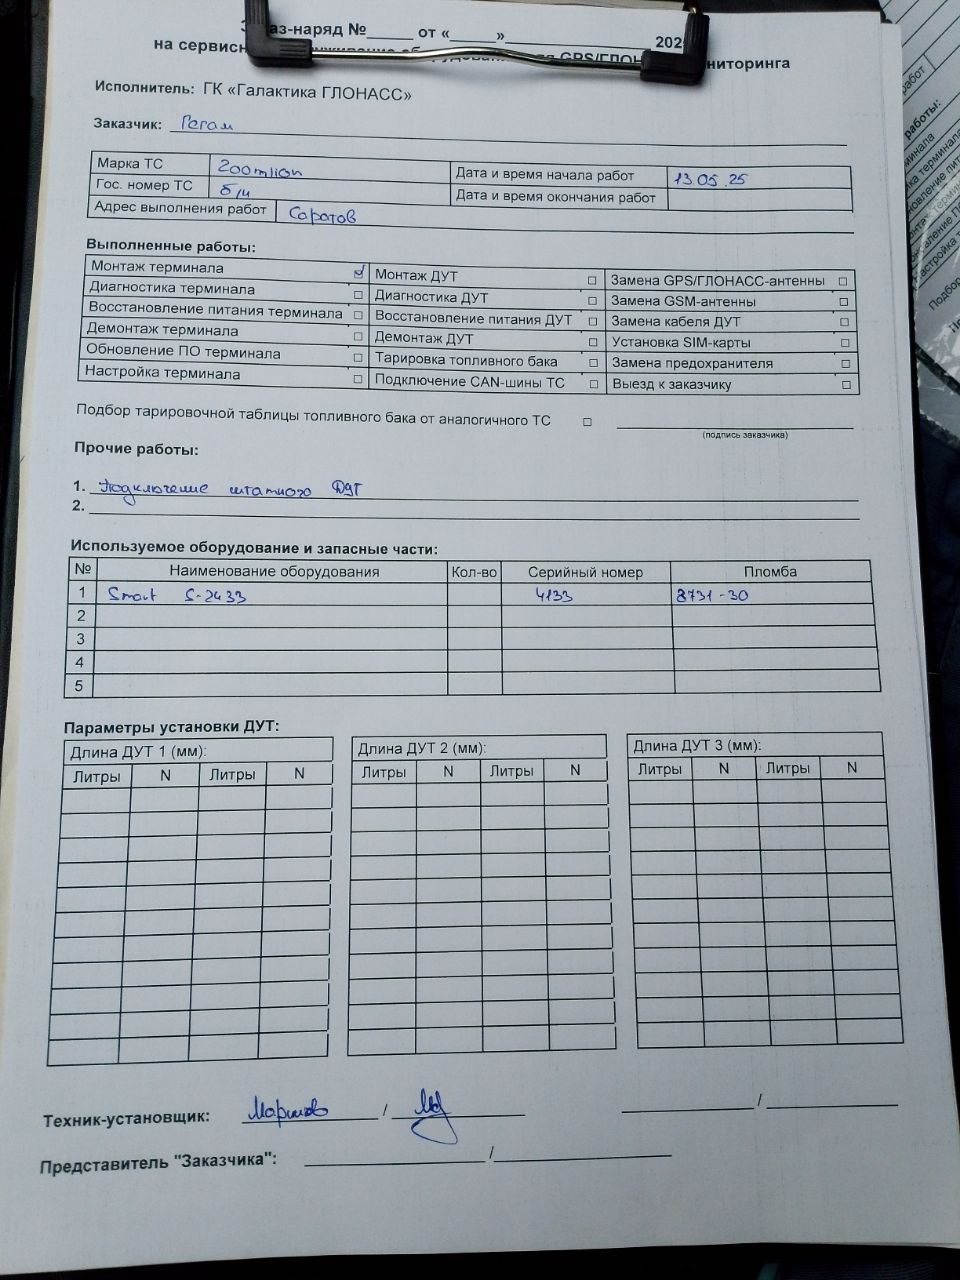 аз-наряд №_____ от «_____»____________ 202
на сервисн GPS/ГЛОН ниторинга
Исполнитель: ГК «Галактика ГЛОНАСС»
Заказчик: Регам
Марка ТС Zoomlion Дата и время начала работ 13.05.25
Гос. номер ТС б/н Дата и время окончания работ
Адрес выполнения работ Саратов
Выполненные работы:
Монтаж терминала ☑ Монтаж ДУТ □ Замена GPS/ГЛОНАСС-антенны □
Диагностика терминала □ Диагностика ДУТ □ Замена GSM-антенны □
Восстановление питания терминала □ Восстановление питания ДУТ □ Замена кабеля ДУТ □
Демонтаж терминала □ Демонтаж ДУТ □ Установка SIM-карты □
Обновление ПО терминала □ Тарировка топливного бака □ Замена предохранителя □
Настройка терминала □ Подключение CAN-шины ТС □ Выезд к заказчику □
Подбор тарировочной таблицы топливного бака от аналогичного ТС □
(подпись заказчика)
Прочие работы:
1. Подключение штатного ДУТ
2.
Используемое оборудование и запасные части:
№ Наименование оборудования Кол-во Серийный номер Пломба
1 Smart S-2433 4133 8731-30
2
3
4
5
Параметры установки ДУТ:
Длина ДУТ 1 (мм): Длина ДУТ 2 (мм): Длина ДУТ 3 (мм):
Литры N Литры N Литры N Литры N Литры N Литры N
Техник-установщик: /
Представитель "Заказчика": /